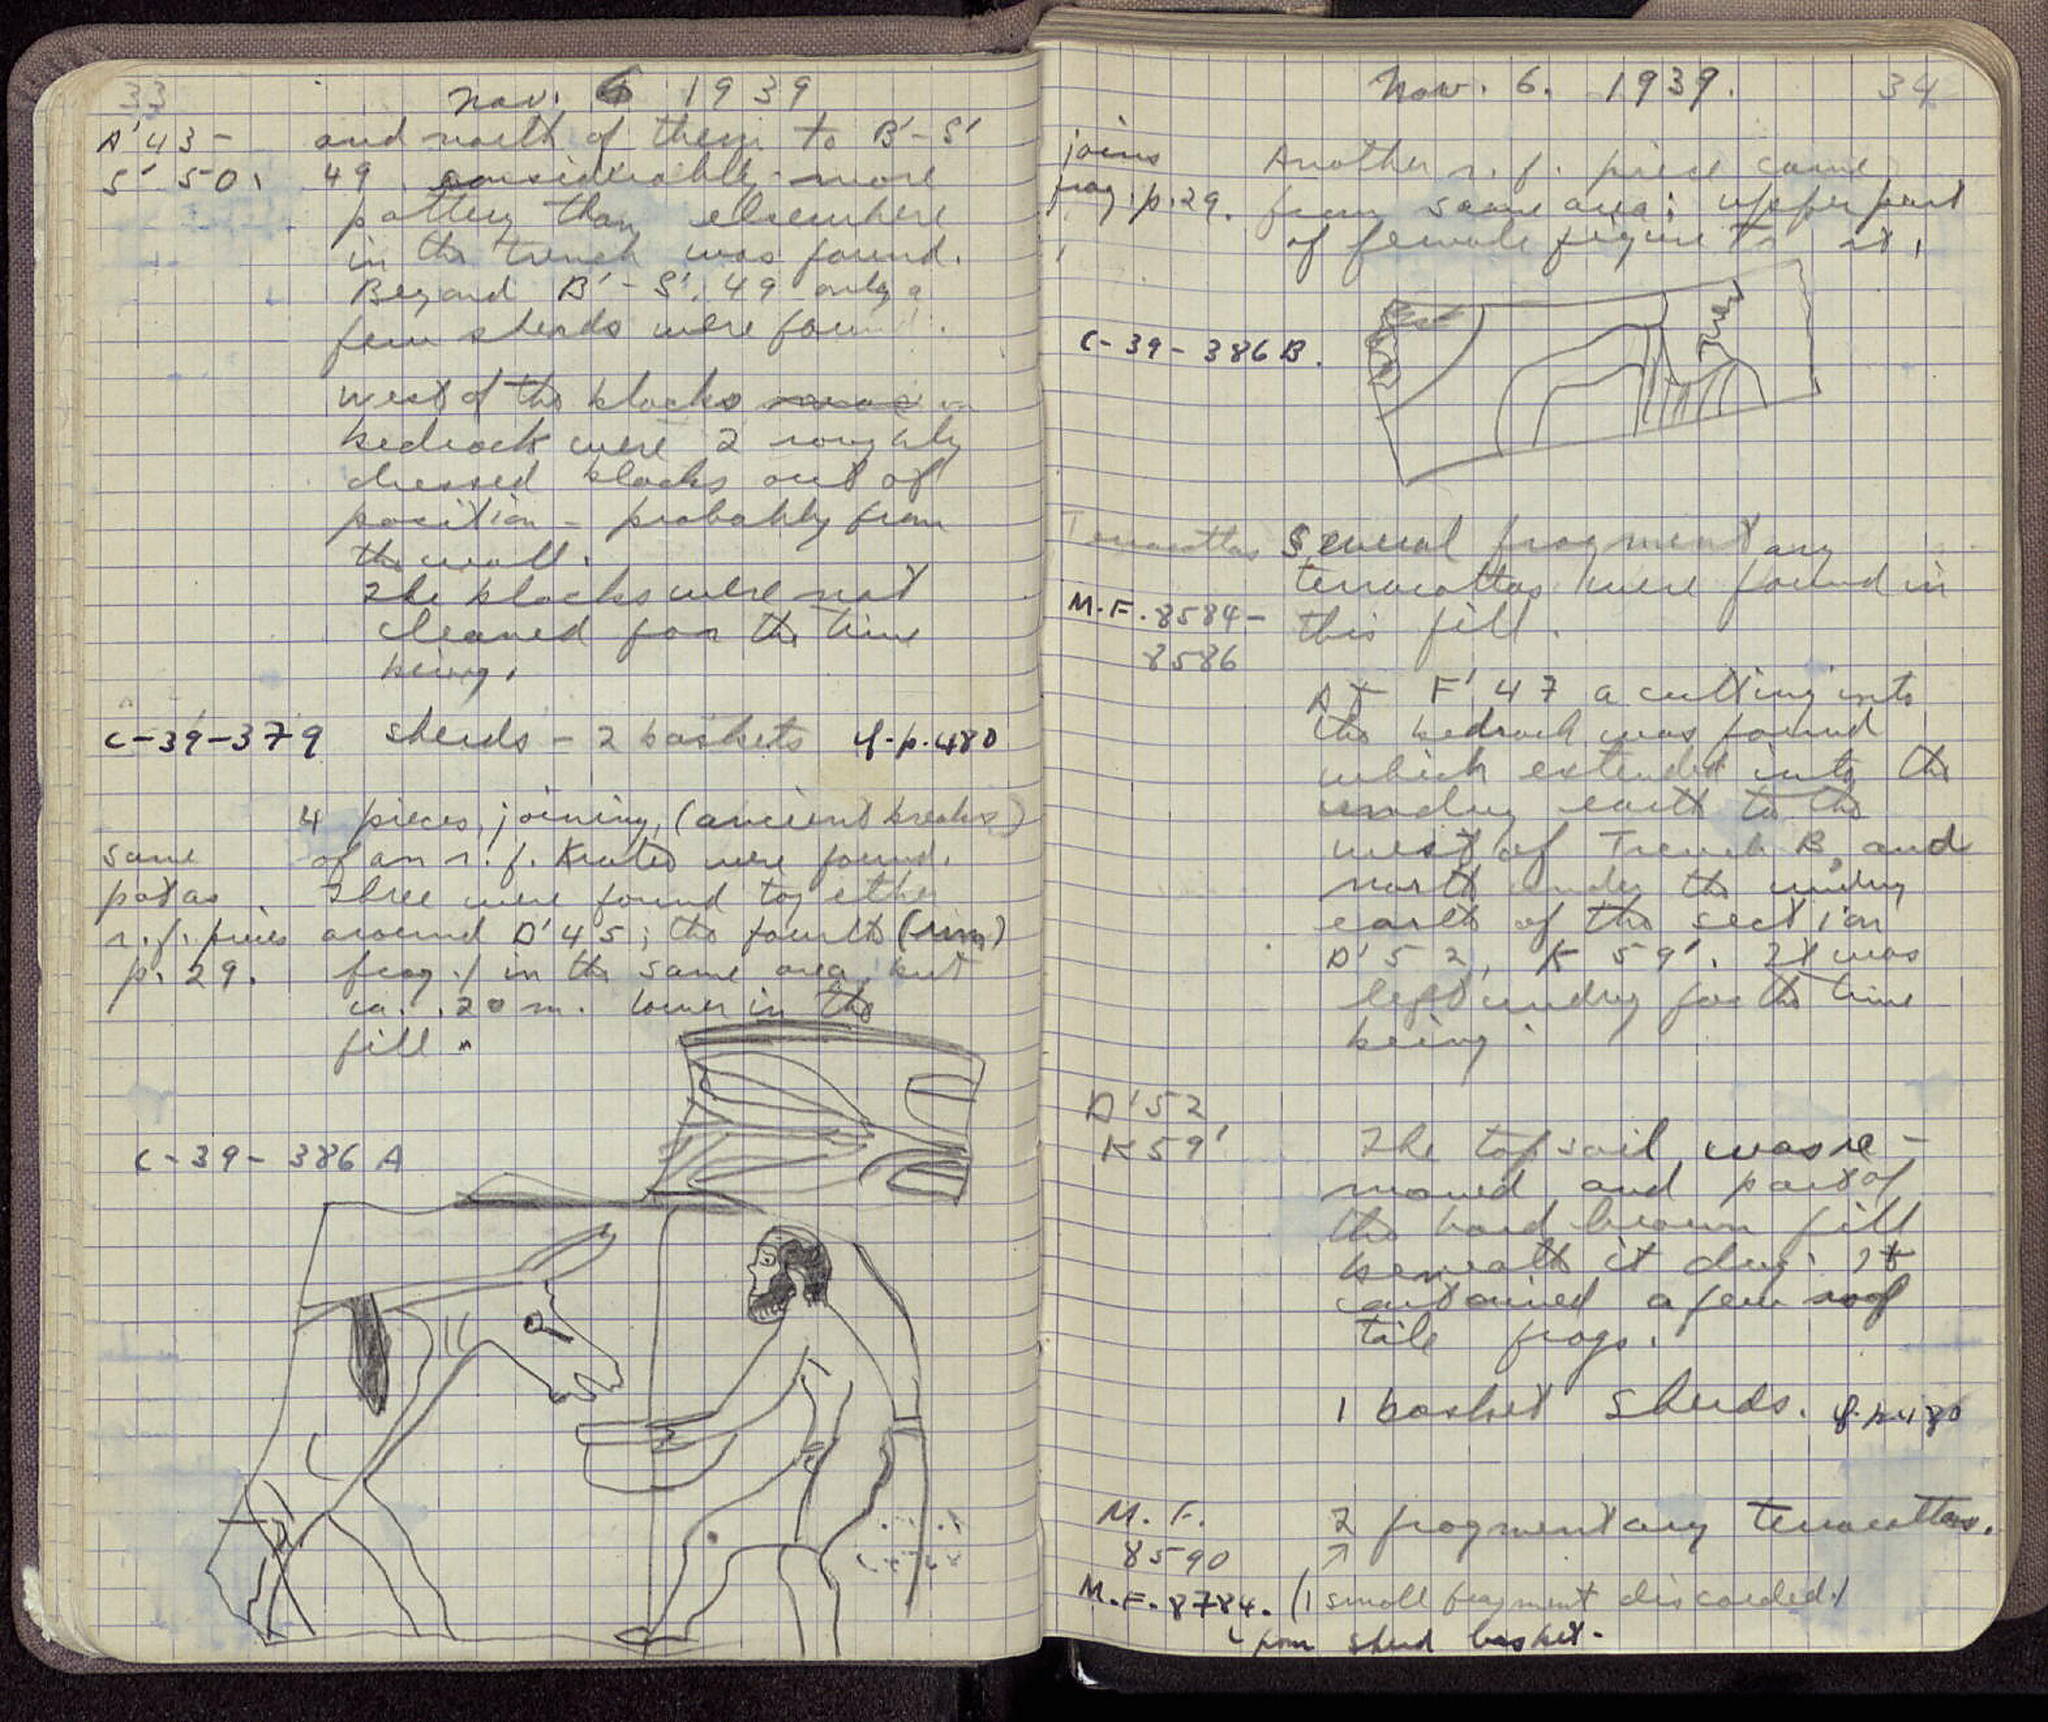 33
Nov. 6 1939
A'43-
S' 50.
and north of them to B'-S'
49 considerably more
pottery than elsewhere
in the trench was found.
Beyond B'-S'. 49 only a
few sherds were found.
West of the blocks in
bedrock were 2 roughly
dressed blocks out of
position - probably from
the wall.
The blocks were not
cleaned for the time
being.
C-39-379 sherds - 2 baskets cf. p. 480
4 pieces, joining, (ancient breaks)
of an r.f. Krater were found.
Three were found together
around D'45; the fourth (rim)
frag. / in the same area but
ca. .20 m. lower in the
fill.
same
pot as
r.f. pieces
p. 29.
C-39-386 A
Nov. 6. 1939. 34
joins
frag. p. 29.
Another r.f. piece came
from same area; upper part
of female figure to rt.
C-39-386 B.
Terracottas
M.F. 8584-
8586
Several fragmentary
terracottas were found in
this fill.
At F'47 a cutting into
the bedrock was found
which extended into the
undug earth to the
west of Trench B, and
north under the undug
earth of the section
D'52, K 59'. It was
left undug for the time
being.
D'52
K59'
The top soil was re-
moved and part of
the hard brown fill
beneath it dug. It
contained a few roof
tile frags.
1 basket sherds. cf. p. 480
M.F.
8590
2 fragmentary terracottas.
M.F. 8784. (1 small fragment discarded.)
from sherd basket.